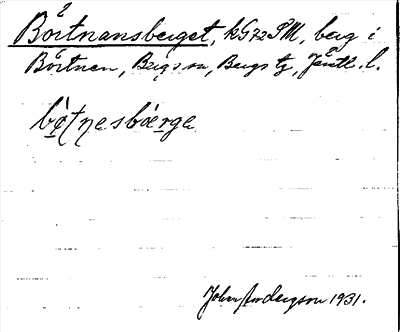 Börtnansberget, kG72SM, berg i
Börtnen, Bergs sn, Bergs tg, Jämtl. l.
bø̀ʈn̥esbærge
John Andersson 1931.